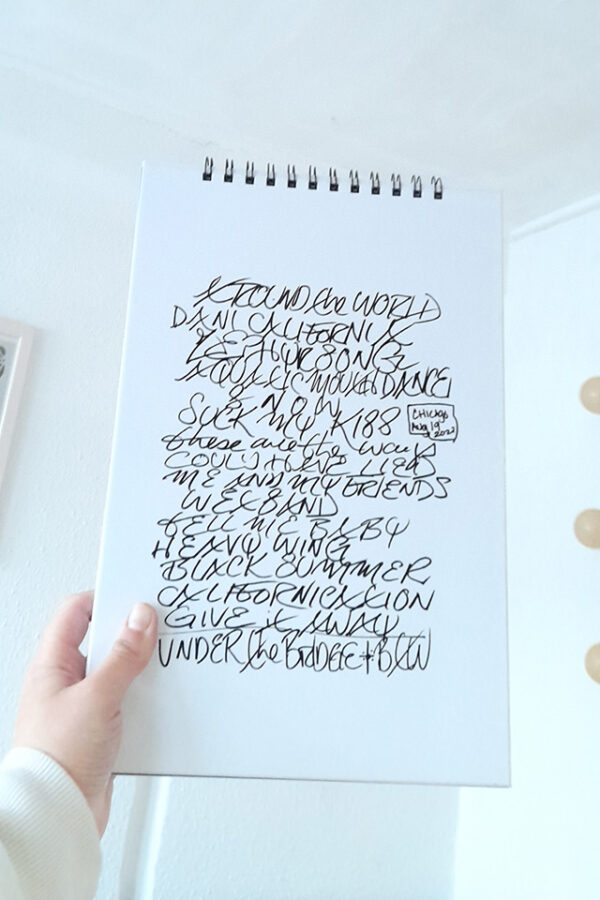 AROUND the WORLD
DANI CALIFORNIA
ZEPHYR SONG
AQUATIC MOUTH DANCE
SNOW
SUCK MY KISS
CHICAGO
Aug 19
2022
these are the ways
COULD HAVE LIED
ME AND MY FRIENDS
WET SAND
TELL ME BABY
HEAVY WING
BLACK SUMMER
CALIFORNICATION
GIVE it AWAY
UNDER the BRIDGE + BTW